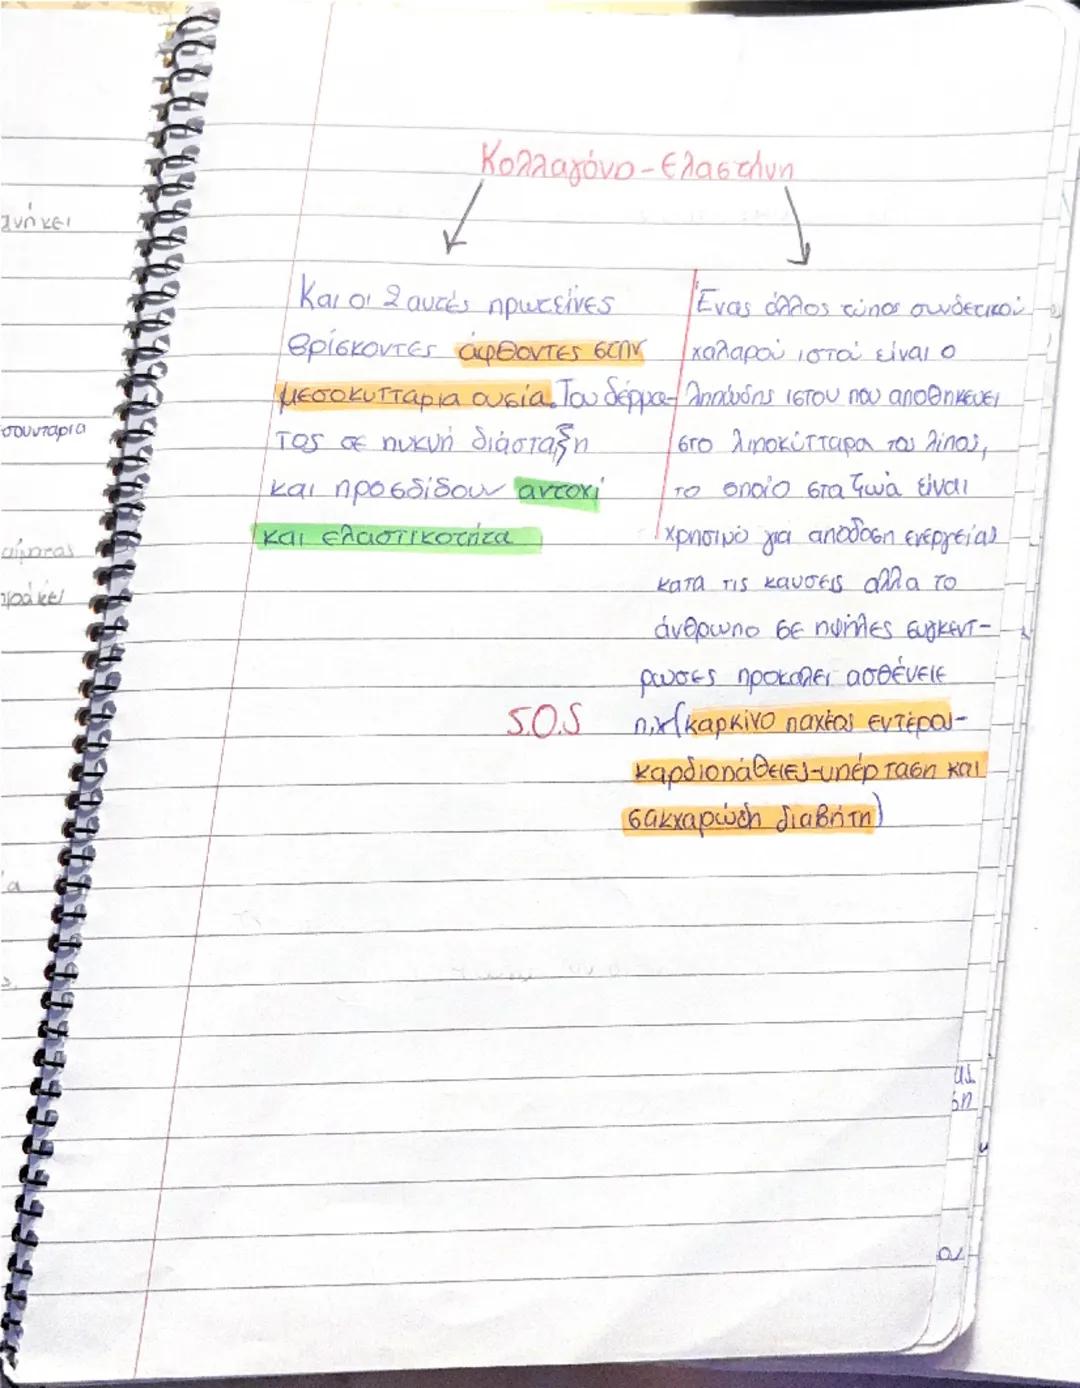 Κολλαγόνο-Ελαστίνη
Και οι 2 αυτές πρωτεΐνες
βρίσκοντες άφθοντες στην
μεσοκυτταρια ουσία. Του δέρμα-
τος σε πυκνή διάσταξη
και προσδίδουν αντοχι
και ελαστικοτήτα
Ένας άλλος τύπος συνδετικού
χαλαρού ιστού είναι ο
λιπώδης ιστου που αποθηκευει
στο λιποκύτταρα του λίπος,
το οποίο στα ζωά είναι
χρησιμο για αποδοση ενεργείας
κατα τις καυσεις αλλα το
άνθρωπο σε πψήλες συγκεντ-
ρωσες προκαλει ασθένειε
S.O.S
π.χ(καρκίνο παχέος εντέρου-
καρδιοπάθειες-υπέρταση και
σακχαρώδη διαβήτη)
ανήκει